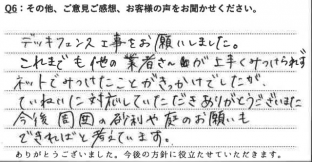 Q6：その他、ご意見ご感想、お客様の声をお聞かせください。
デッキフェンス工事をお願いしました。
これまでも他の業者さんが上手くみつけられず
ネットでみつけたことがきっかけでしたが、
ていねいに対応していただきありがとうございました
今後 周囲の砂利や庭のお願いも
できればと考えています。
ありがとうございました。今後の方針に役立たせていただきます。